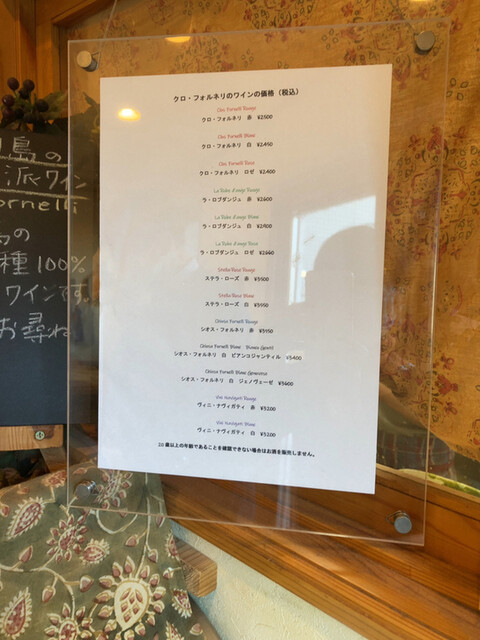 クロ・フォルネリのワインの価格(税込)
Clos Fornelli Rouge
クロ・フォルネリ 赤 ¥2500
Clos Fornelli Blanc
クロ・フォルネリ 白 ¥2450
Clos Fornelli Rose
クロ・フォルネリ ロゼ ¥2400
La Robe d'ange Rouge
ラ・ロブダンジュ 赤
La Robe d'ange Blanc
ラ・ロブダンジュ 白
La Robe d'ange Rose
ラ・ロブダンジュ ロゼ
Stella Rose Rouge
ステラ・ローズ 赤
Stella Rose Blanc
ステラ・ローズ 白
Fornelli Rouge
シオス・フォルネリ 赤 ¥3950
Fornelli Blanc Bianco Gentil
シオス・フォルネリ 白 ビアンコジャンティル ¥5400
Fornelli Blanc Genovese
シオス・フォルネリ 白 ジェノヴェーゼ
Rouge
ヴィニ・ナヴィガティ 赤 ¥5200
Blanc
ヴィニ・ナヴィガティ 白 ¥5200
20歳以上の年齢であることを確認できない場合はお酒を販売しません。
島の
派ワイン
ornelli
の
種100%
ワインです。
お尋ね